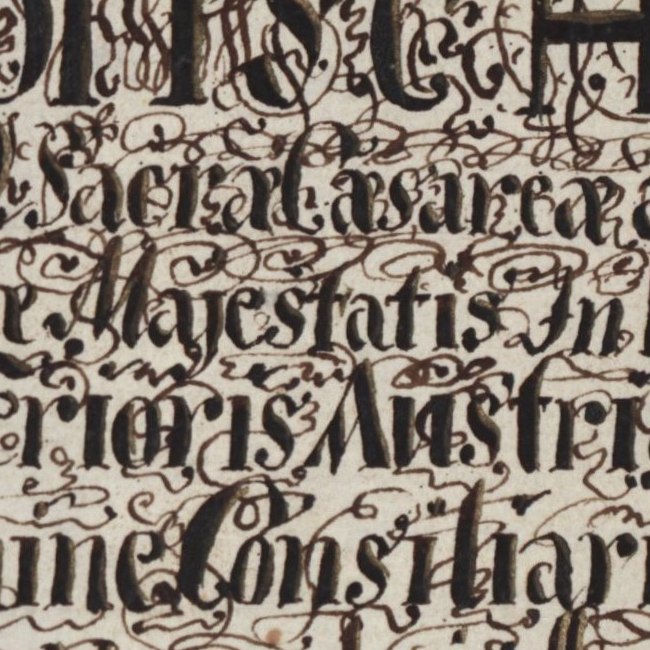 Sacræ Cæsareæ
Majestatis In
erioris Austri
unc Consiliari